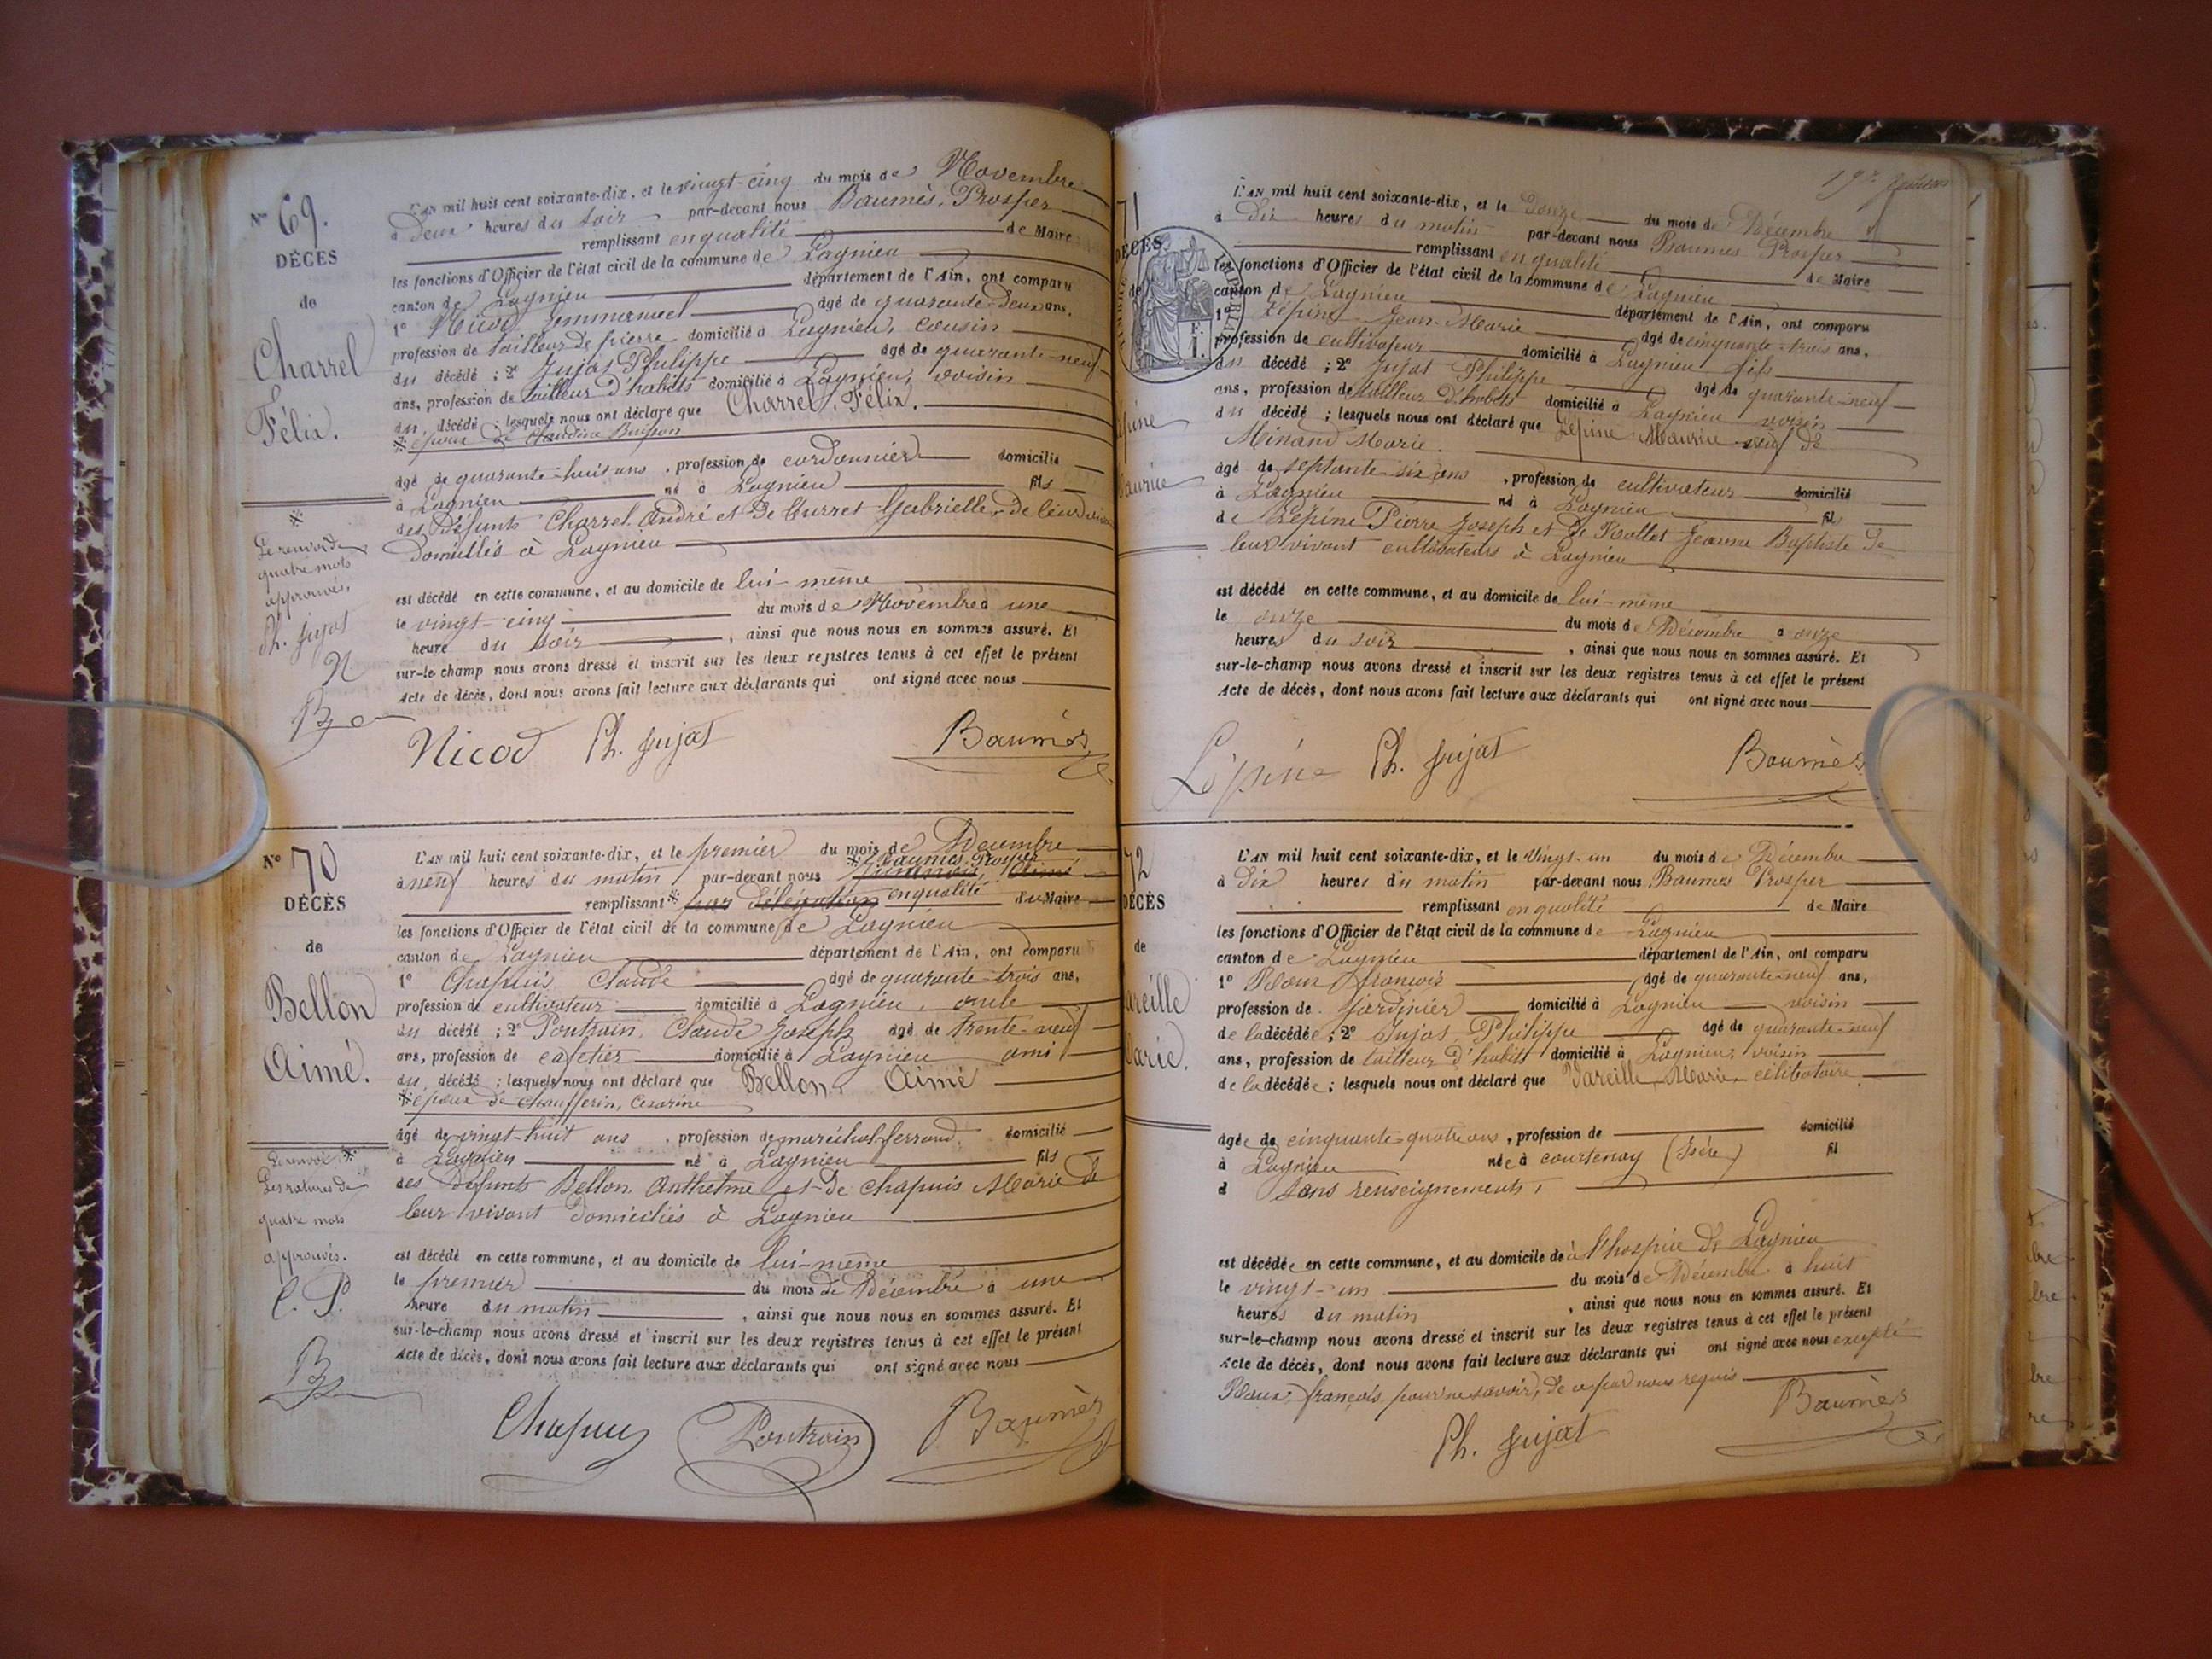 N° 69.
DÉCES
de
Charrel
Félix.
L'AN mil huit cent soixante-dix, et le vingt-cinq du mois de Novembre
à deux heures du soir par-devant nous Baumès, Prosper
remplissant en qualité de Maire
les fonctions d'Officier de l'état civil de la commune de Lagnieu
canton de Lagnieu département de l'Ain, ont comparu
1° Nicod Emmanuel âgé de quarante-deux ans,
profession de tailleur de pierre domicilié à Lagnieu, cousin
du décédé ; 2° Jujat Philippe âgé de quarante-neuf
ans, profession de tailleur d'habits domicilié à Lagnieu, voisin
du décédé ; lesquels nous ont déclaré que Charrel, Félix.
※ époux de Claudine Buisson
âgé de quarante-huit ans, profession de cordonnier domicilié
à Lagnieu né à Lagnieu fils
des défunts Charrel André et de Curret Gabrielle, de leur vivant
domiciliés à Lagnieu
est décédé en cette commune, et au domicile de lui-même
le vingt-cinq du mois de Novembre à une
heure du soir, ainsi que nous nous en sommes assuré. Et
sur-le-champ nous avons dressé et inscrit sur les deux registres tenus à cet effet le présent
Acte de décès, dont nous avons fait lecture aux déclarants qui ont signé avec nous
※
Le renvoi de
quatre mots
approuvés.
Ph. Jujat
N
B
Nicod Ph. Jujat Baumès
N° 70
DÉCÈS
de
Bellon
Aimé.
L'AN mil huit cent soixante-dix, et le premier du mois de Décembre
※ Baumès, Prosper
à neuf heures du matin par-devant nous Aimé
remplissant ※ par délégation en qualité du Maire
les fonctions d'Officier de l'état civil de la commune de Lagnieu
canton de Lagnieu département de l'Ain, ont comparu
1° Chapuis, Claude âgé de quarante-trois ans,
profession de cultivateur domicilié à Lagnieu, oncle
du décédé ; 2° Poutrain, Claude Joseph âgé de trente-neuf
ans, profession de cafetier domicilié à Lagnieu ami
du décédé ; lesquels nous ont déclaré que Bellon, Aimé
※ époux de Chaufferin, Césarine
âgé de vingt-huit ans, profession de maréchal ferrand, domicilié
à Lagnieu né à Lagnieu fils
des défunts Bellon Anthelme et de Chapuis Marie de
leur vivant domiciliés à Lagnieu
est décédé en cette commune, et au domicile de lui-même
le premier du mois de Décembre à une
heure du matin, ainsi que nous nous en sommes assuré. Et
sur-le-champ nous avons dressé et inscrit sur les deux registres tenus à cet effet le présent
Acte de décès, dont nous avons fait lecture aux déclarants qui ont signé avec nous
Le renvoi ※
Les ratures de
quatre mots
approuvés.
C. P.
B
Chapuis Poutrain Baumès
71
DÉCÈS
de
L'AN mil huit cent soixante-dix, et le douze du mois de Décembre
à dix heures du matin par-devant nous Baumès Prosper
remplissant en qualité de Maire
les fonctions d'Officier de l'état civil de la commune de Lagnieu
canton de Lagnieu département de l'Ain, ont comparu
1° Lépine Jean-Marie âgé de cinquante-trois ans,
profession de cultivateur domicilié à Lagnieu fils
du décédé ; 2° Jujat Philippe âgé de quarante-neuf
ans, profession de tailleur d'habits domicilié à Lagnieu voisin
du décédé ; lesquels nous ont déclaré que Lépine Maurice veuf de
Minand Marie.
âgé de septante-six ans, profession de cultivateur domicilié
à Lagnieu né à Lagnieu fils
de Lépine Pierre Joseph et de Rollet Jeanne Baptiste de
leur vivant cultivateurs à Lagnieu
est décédé en cette commune, et au domicile de lui-même
le onze du mois de Décembre à onze
heures du soir, ainsi que nous nous en sommes assuré. Et
sur-le-champ nous avons dressé et inscrit sur les deux registres tenus à cet effet le présent
Acte de décès, dont nous avons fait lecture aux déclarants qui ont signé avec nous
Lépine Ph. Jujat Baumès
72
DÉCÈS
de
areille
arie.
L'AN mil huit cent soixante-dix, et le vingt-un du mois de Décembre
à dix heures du matin par-devant nous Baumès Prosper
remplissant en qualité de Maire
les fonctions d'Officier de l'état civil de la commune de Lagnieu
canton de Lagnieu département de l'Ain, ont comparu
1° François âgé de quarante-neuf ans,
profession de jardinier domicilié à Lagnieu voisin
de la décédée ; 2° Jujat, Philippe âgé de quarante-neuf
ans, profession de tailleur d'habits domicilié à Lagnieu, voisin
de la décédée ; lesquels nous ont déclaré que Vareille, Marie, célibataire
âgée de cinquante-quatre ans, profession de domicilié
à Lagnieu née à courtenay (Isère) fil
d sans renseignements,
est décédée en cette commune, et au domicile de à l'hospice de Lagnieu
le vingt-un du mois de Décembre à huit
heures du matin, ainsi que nous nous en sommes assuré. Et
sur-le-champ nous avons dressé et inscrit sur les deux registres tenus à cet effet le présent
Acte de décès, dont nous avons fait lecture aux déclarants qui ont signé avec nous excepté
françois, pour ne savoir, de ce par nous requis
Ph. Jujat Baumès